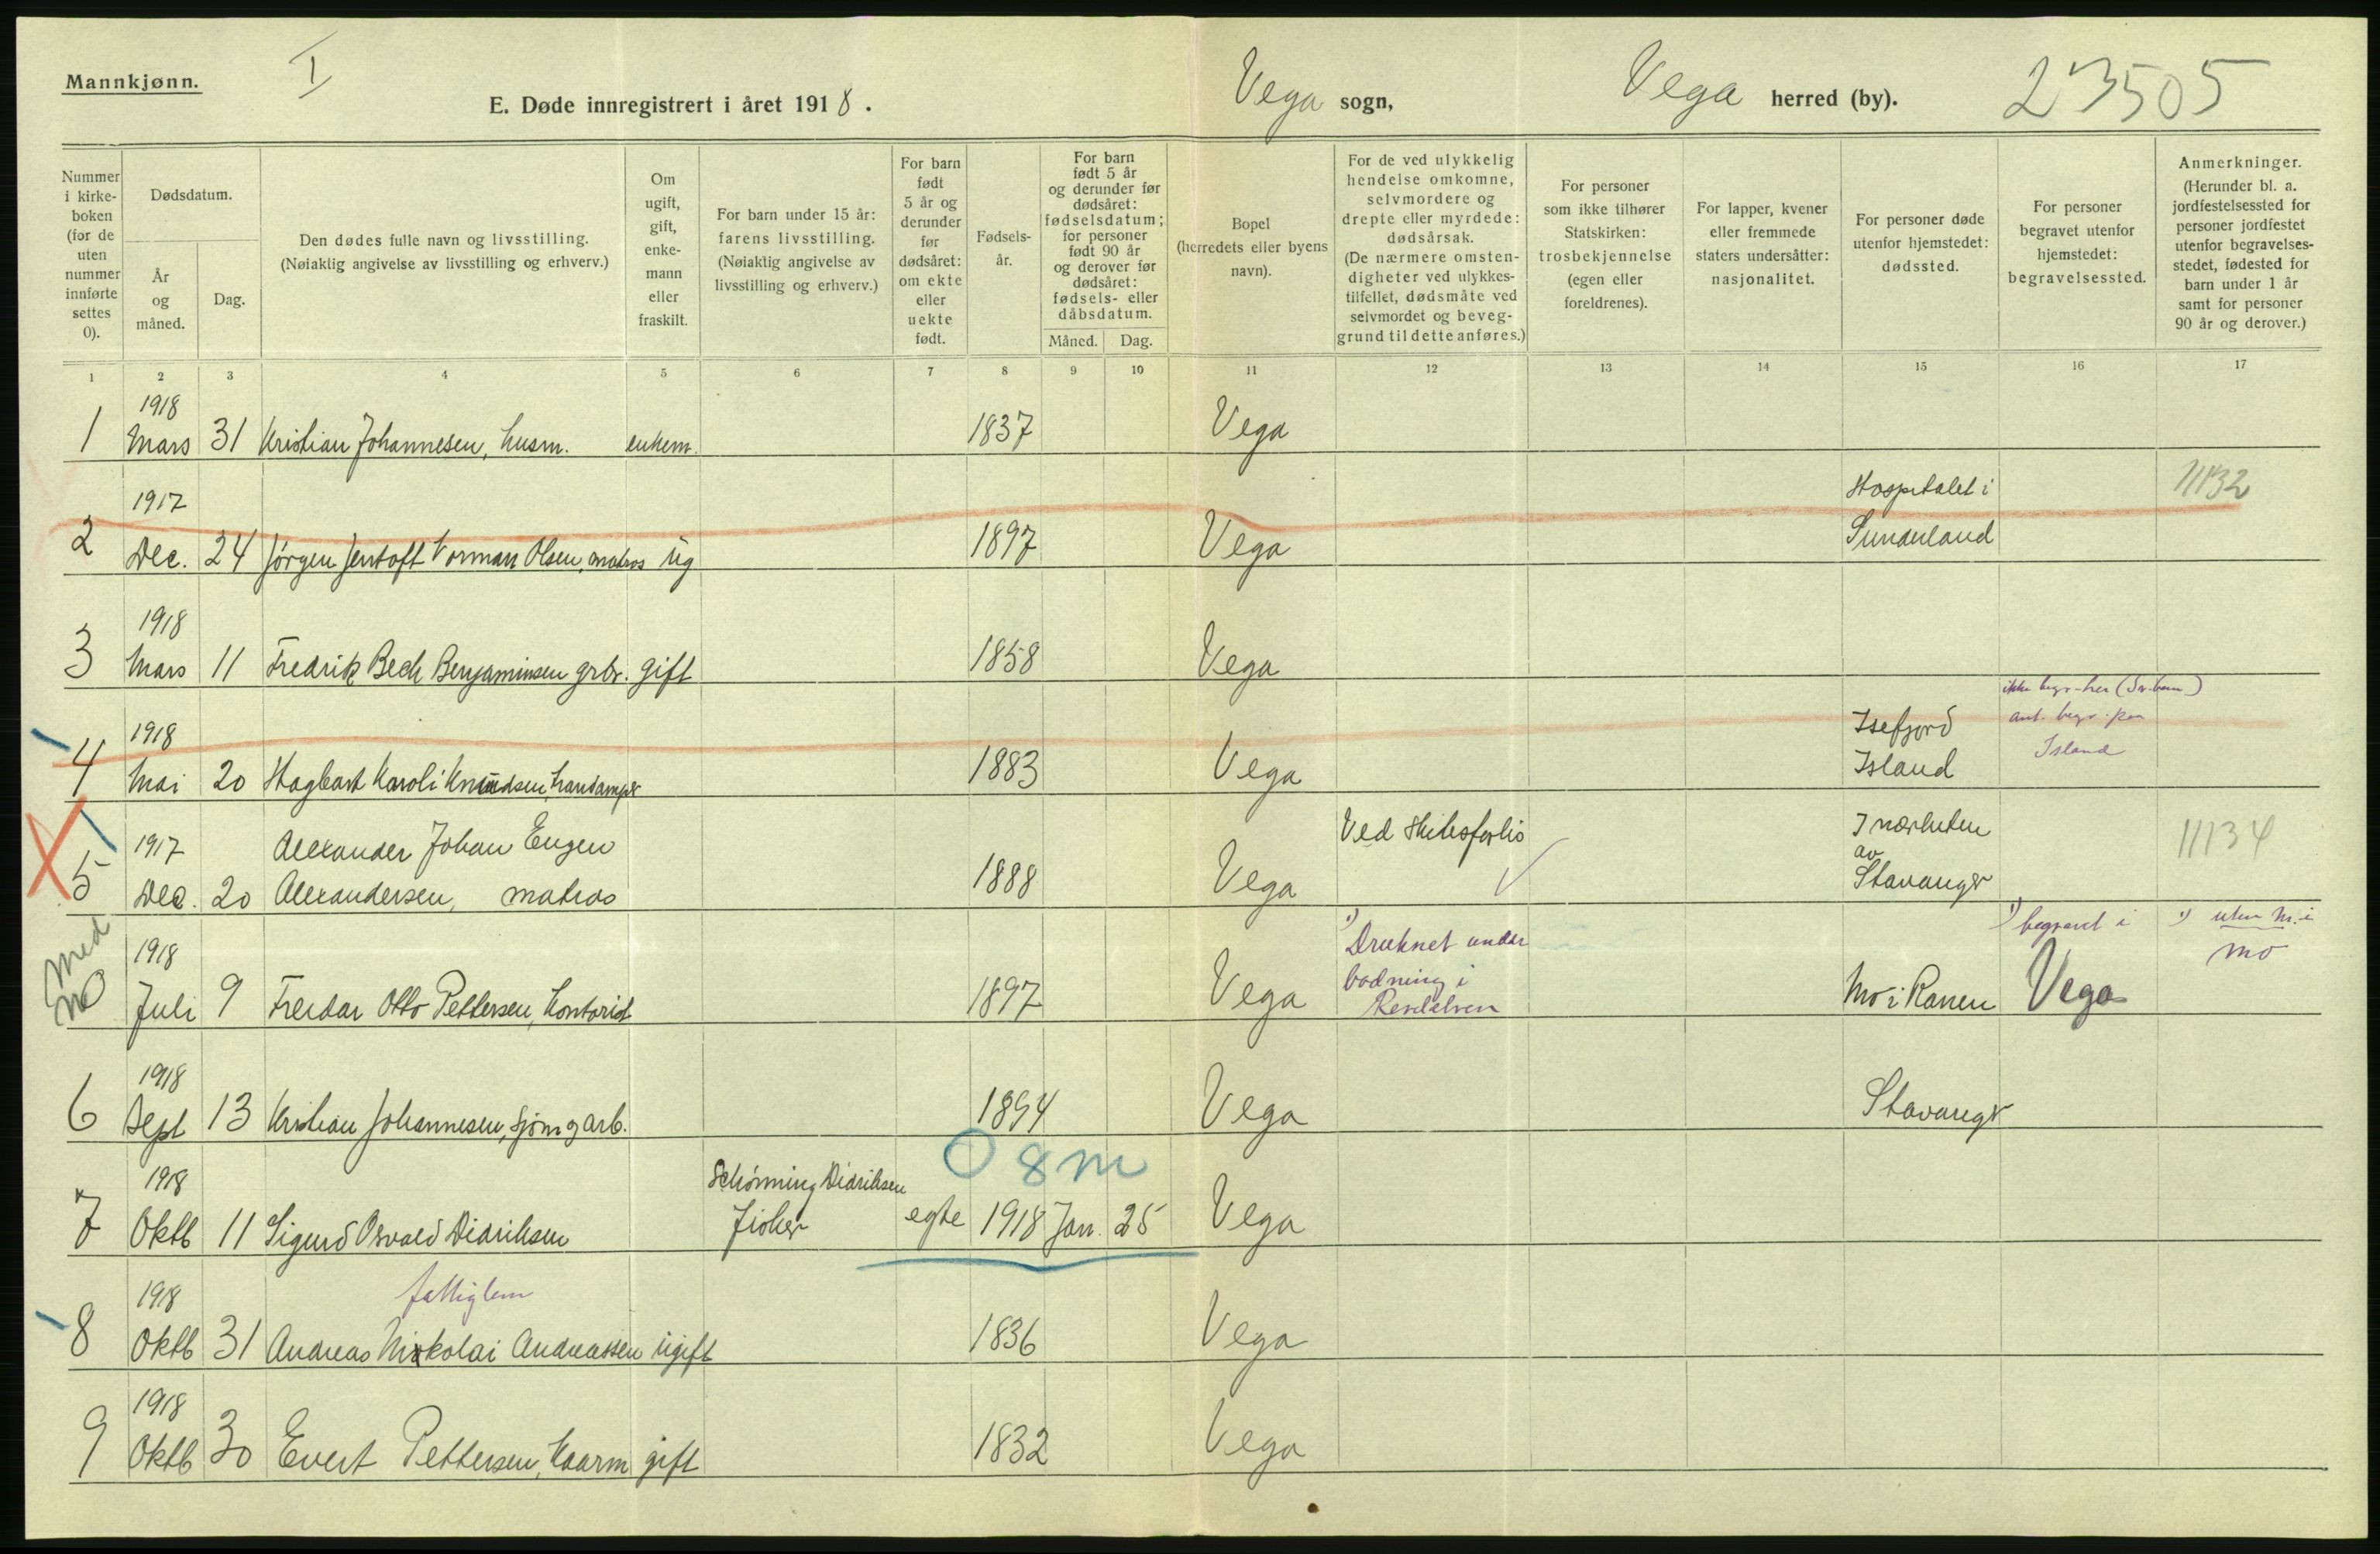 Mannkjønn.
I
E. Døde innregistrert i året 1918.
Vega sogn,
Vega herred (by).
23505
Nummer i kirke-boken (for de uten nummer innførte settes 0).
Dødsdatum.
År og måned.
Dag.
Den dødes fulle navn og livsstilling.
(Nøiaktig angivelse av livsstilling og erhverv.)
Om ugift, gift, enke-mann eller fraskilt.
For barn under 15 år: farens livsstilling.
(Nøiaktig angivelse av livsstilling og erhverv.)
For barn født 5 år og derunder før dødsåret: om ekte eller uekte født.
Fødsels-år.
For barn født 5 år og derunder før dødsåret: fødselsdatum; for personer født 90 år og derover før dødsåret: fødsels- eller dåbsdatum.
Måned. Dag.
Bopel (herredets eller byens navn).
For de ved ulykkelig hendelse omkomne, selvmordere og drepte eller myrdede: dødsårsak.
(De nærmere omsten-digheter ved ulykkes-tilfellet, dødsmåte ved selvmordet og beveg-grund til dette anføres.)
For personer som ikke tilhører Statskirken: trosbekjennelse (egen eller foreldrenes).
For lapper, kvener eller fremmede staters undersåtter: nasjonalitet.
For personer døde utenfor hjemstedet: dødssted.
For personer begravet utenfor hjemstedet: begravelsessted.
Anmerkninger.
(Herunder bl. a. jordfestelsessted for personer jordfestet utenfor begravelses-stedet, fødested for barn under 1 år samt for personer 90 år og derover.)
1 2 3 4 5 6 7 8 9 10 11 12 13 14 15 16 17
1918
1 Mars 31 Kristian Johannesen, husm. enkem. 1837 Vega
1917 Hospitalet i 11132
2 Dec. 24 Jørgen Jentoft Norman Olsen, matros ug 1897 Vega Sunderland
1918
3 Mars 11 Fredrik Bech Benjaminsen grbr. gift 1858 Vega
ikke begr. her
1918 Isefjord ant. begr. paa
4 Mai 20 Hagbart Karoli Knudsen, 1883 Vega Island Island
1917 Alexander Johan Eugen Ved Skibsforlis I nærheten av 11134
5 Dec. 20 Alexandersen, matros 1888 Vega Stavanger
Med
1) Druknet under 1) begravet i 1) uten nr. i
1918 badning i mo
no Juli 9 Freidar Otto Pettersen, Kontorist 1897 Vega Mo i Ranen Vega
1918
6 Sept 13 Kristian Johannesen, sjøm og arb. 1894 Vega Stavanger
O 8 m
1918 Schønning Didriksen
7 Oktb 11 Sigurd Osvald Didriksen Fisker egte 1918 Jan. 25 Vega
1918 fattiglem
8 Oktb 31 Andreas Nikolai Andreassen ugift 1836 Vega
1918
9 Oktb 30 Evert Pettersen, Kaarm gift 1832 Vega